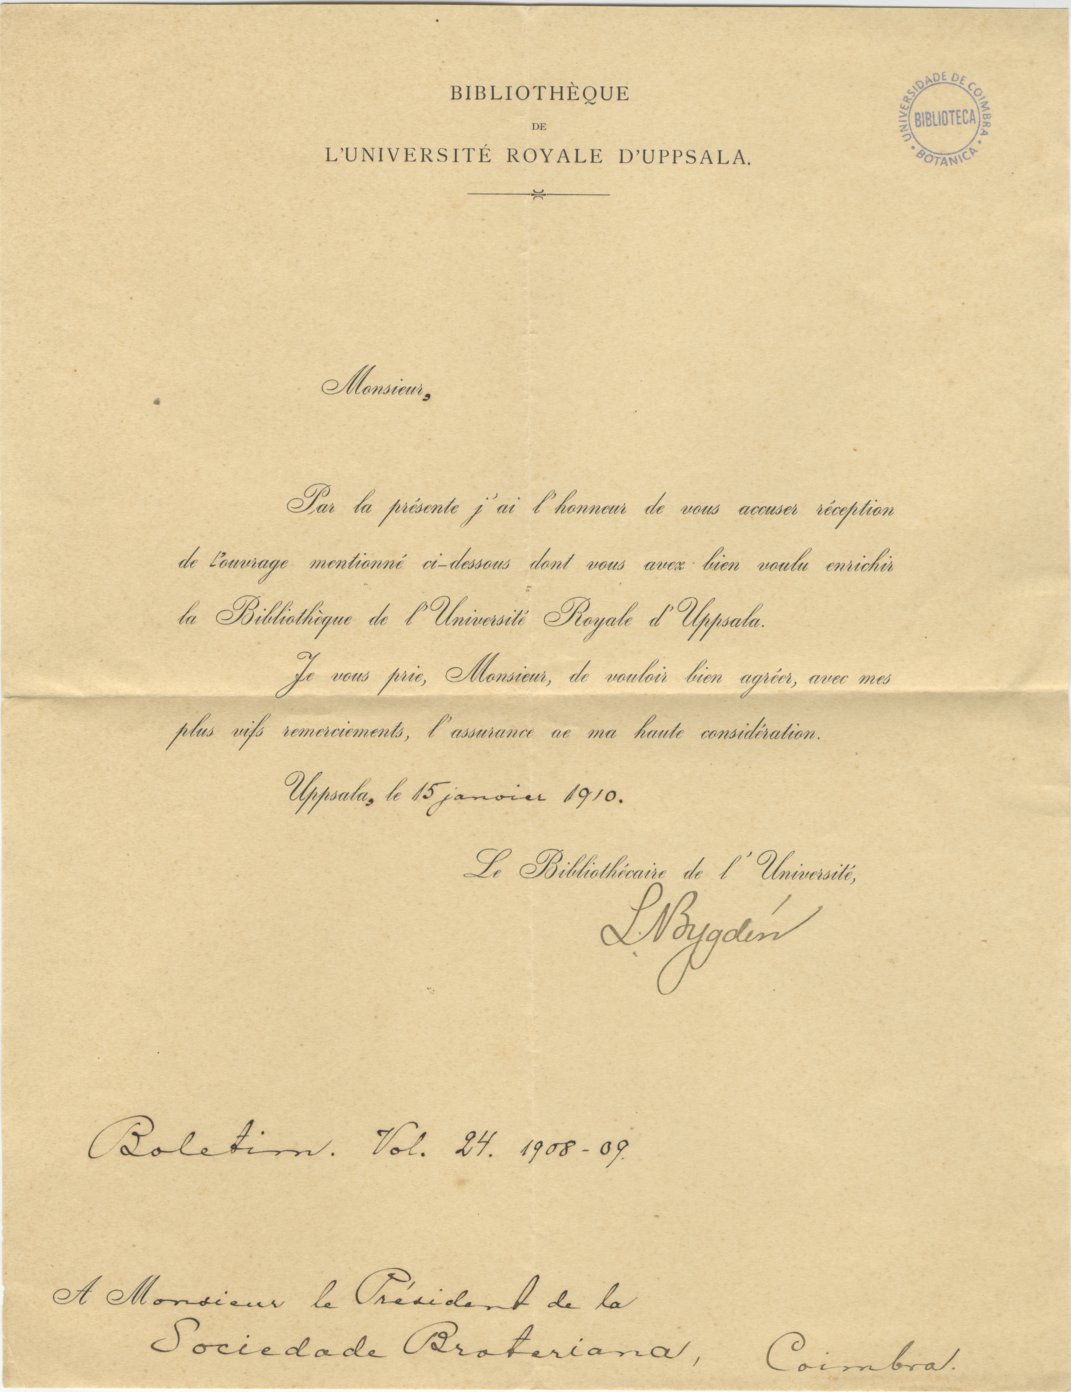 BIBLIOTHÈQUE
DE
L'UNIVERSITÉ ROYALE D'UPPSALA.
UNIVERSIDADE DE COIMBRA
BIBLIOTECA
• BOTANICA •
Monsieur,
Par la présente j'ai l'honneur de vous accuser réception
de l'ouvrage mentionné ci-dessous dont vous avez bien voulu enrichir
la Bibliothèque de l'Université Royale d'Uppsala.
Je vous prie, Monsieur, de vouloir bien agréer, avec mes
plus vifs remerciements, l'assurance de ma haute considération.
Uppsala, le 15 janvier 1910.
Le Bibliothécaire de l'Université,
L. Bygdén
Boletim. Vol. 24. 1908-09.
A Monsieur le Président de la
Sociedade Broteriana, Coimbra.